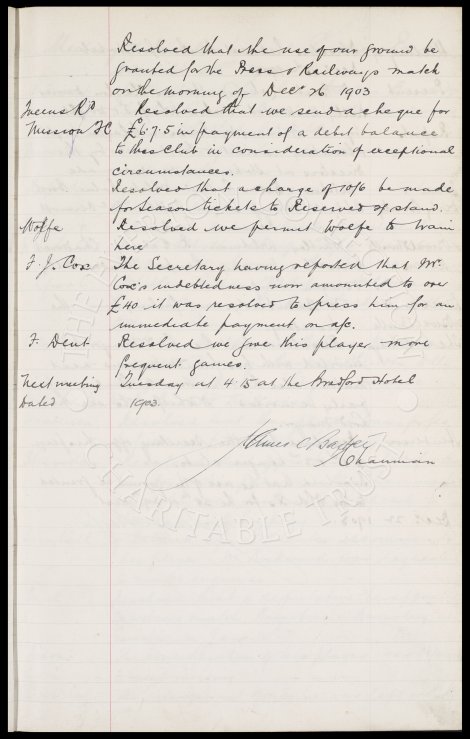 Resolved that the use of our ground be
granted for the Press v Railways match
on the morning of Decr 26 1903
Queens Rd Resolved that we send a cheque for
Mission FC £6.7.5 in payment of a debit balance
to this Club in consideration of exceptional
circumstances.
Resolved that a charge of 10/6 be made
for Season tickets to Reserved of stand.
Wolfe Resolved we permit Wolfe to train
here
F. J. Cox The Secretary having reported that Mr
Cox's indebtedness now amounted to over
£40 it was resolved to press him for an
immediate payment on a/c.
F. Dent Resolved we give this player more
frequent games.
Next meeting Tuesday at 4.15 at the Bradford Hotel
Dated 1903.
James C Baxter
Chairman
CHARITABLE TRUST